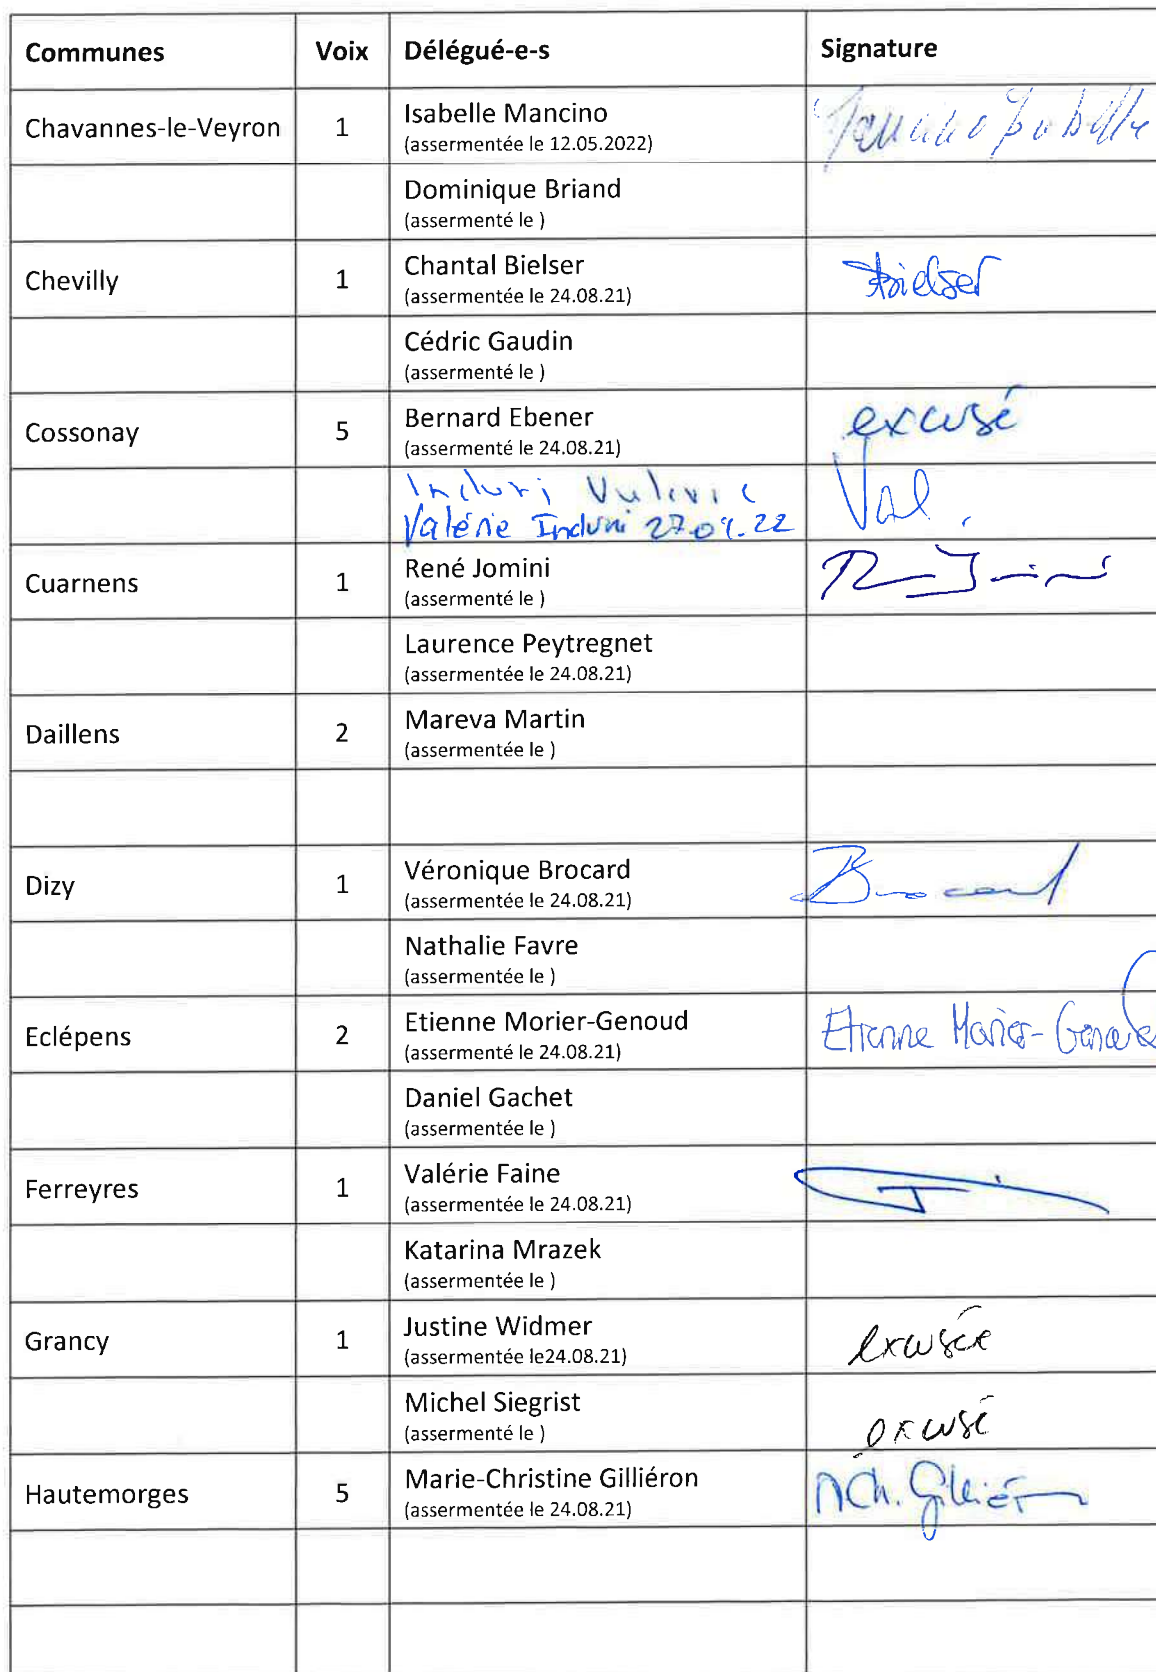 Communes Voix Délégué-e-s Signature
Chavannes-le-Veyron 1 Isabelle Mancino
(assermentée le 12.05.2022)
Dominique Briand
(assermenté le )
Chevilly 1 Chantal Bielser Bielser
(assermentée le 24.08.21)
Cédric Gaudin
(assermenté le )
Cossonay 5 Bernard Ebener excusé
(assermenté le 24.08.21)
Induni
Valérie Induni 27.09.22 Val.
Cuarnens 1 René Jomini
(assermenté le )
Laurence Peytregnet
(assermentée le 24.08.21)
Daillens 2 Mareva Martin
(assermentée le )
Dizy 1 Véronique Brocard Brocard
(assermentée le 24.08.21)
Nathalie Favre
(assermentée le )
Eclépens 2 Etienne Morier-Genoud Etienne Morier-Genoud
(assermenté le 24.08.21)
Daniel Gachet
(assermentée le )
Ferreyres 1 Valérie Faine
(assermentée le 24.08.21)
Katarina Mrazek
(assermentée le )
Grancy 1 Justine Widmer excusée
(assermentée le24.08.21)
Michel Siegrist excusé
(assermenté le )
Hautemorges 5 Marie-Christine Gilliéron MCh. Gilliéron
(assermentée le 24.08.21)